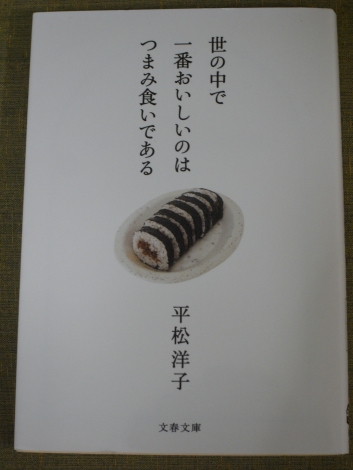 世の中で
一番おいしいのは
つまみ食いである
平松洋子
文春文庫